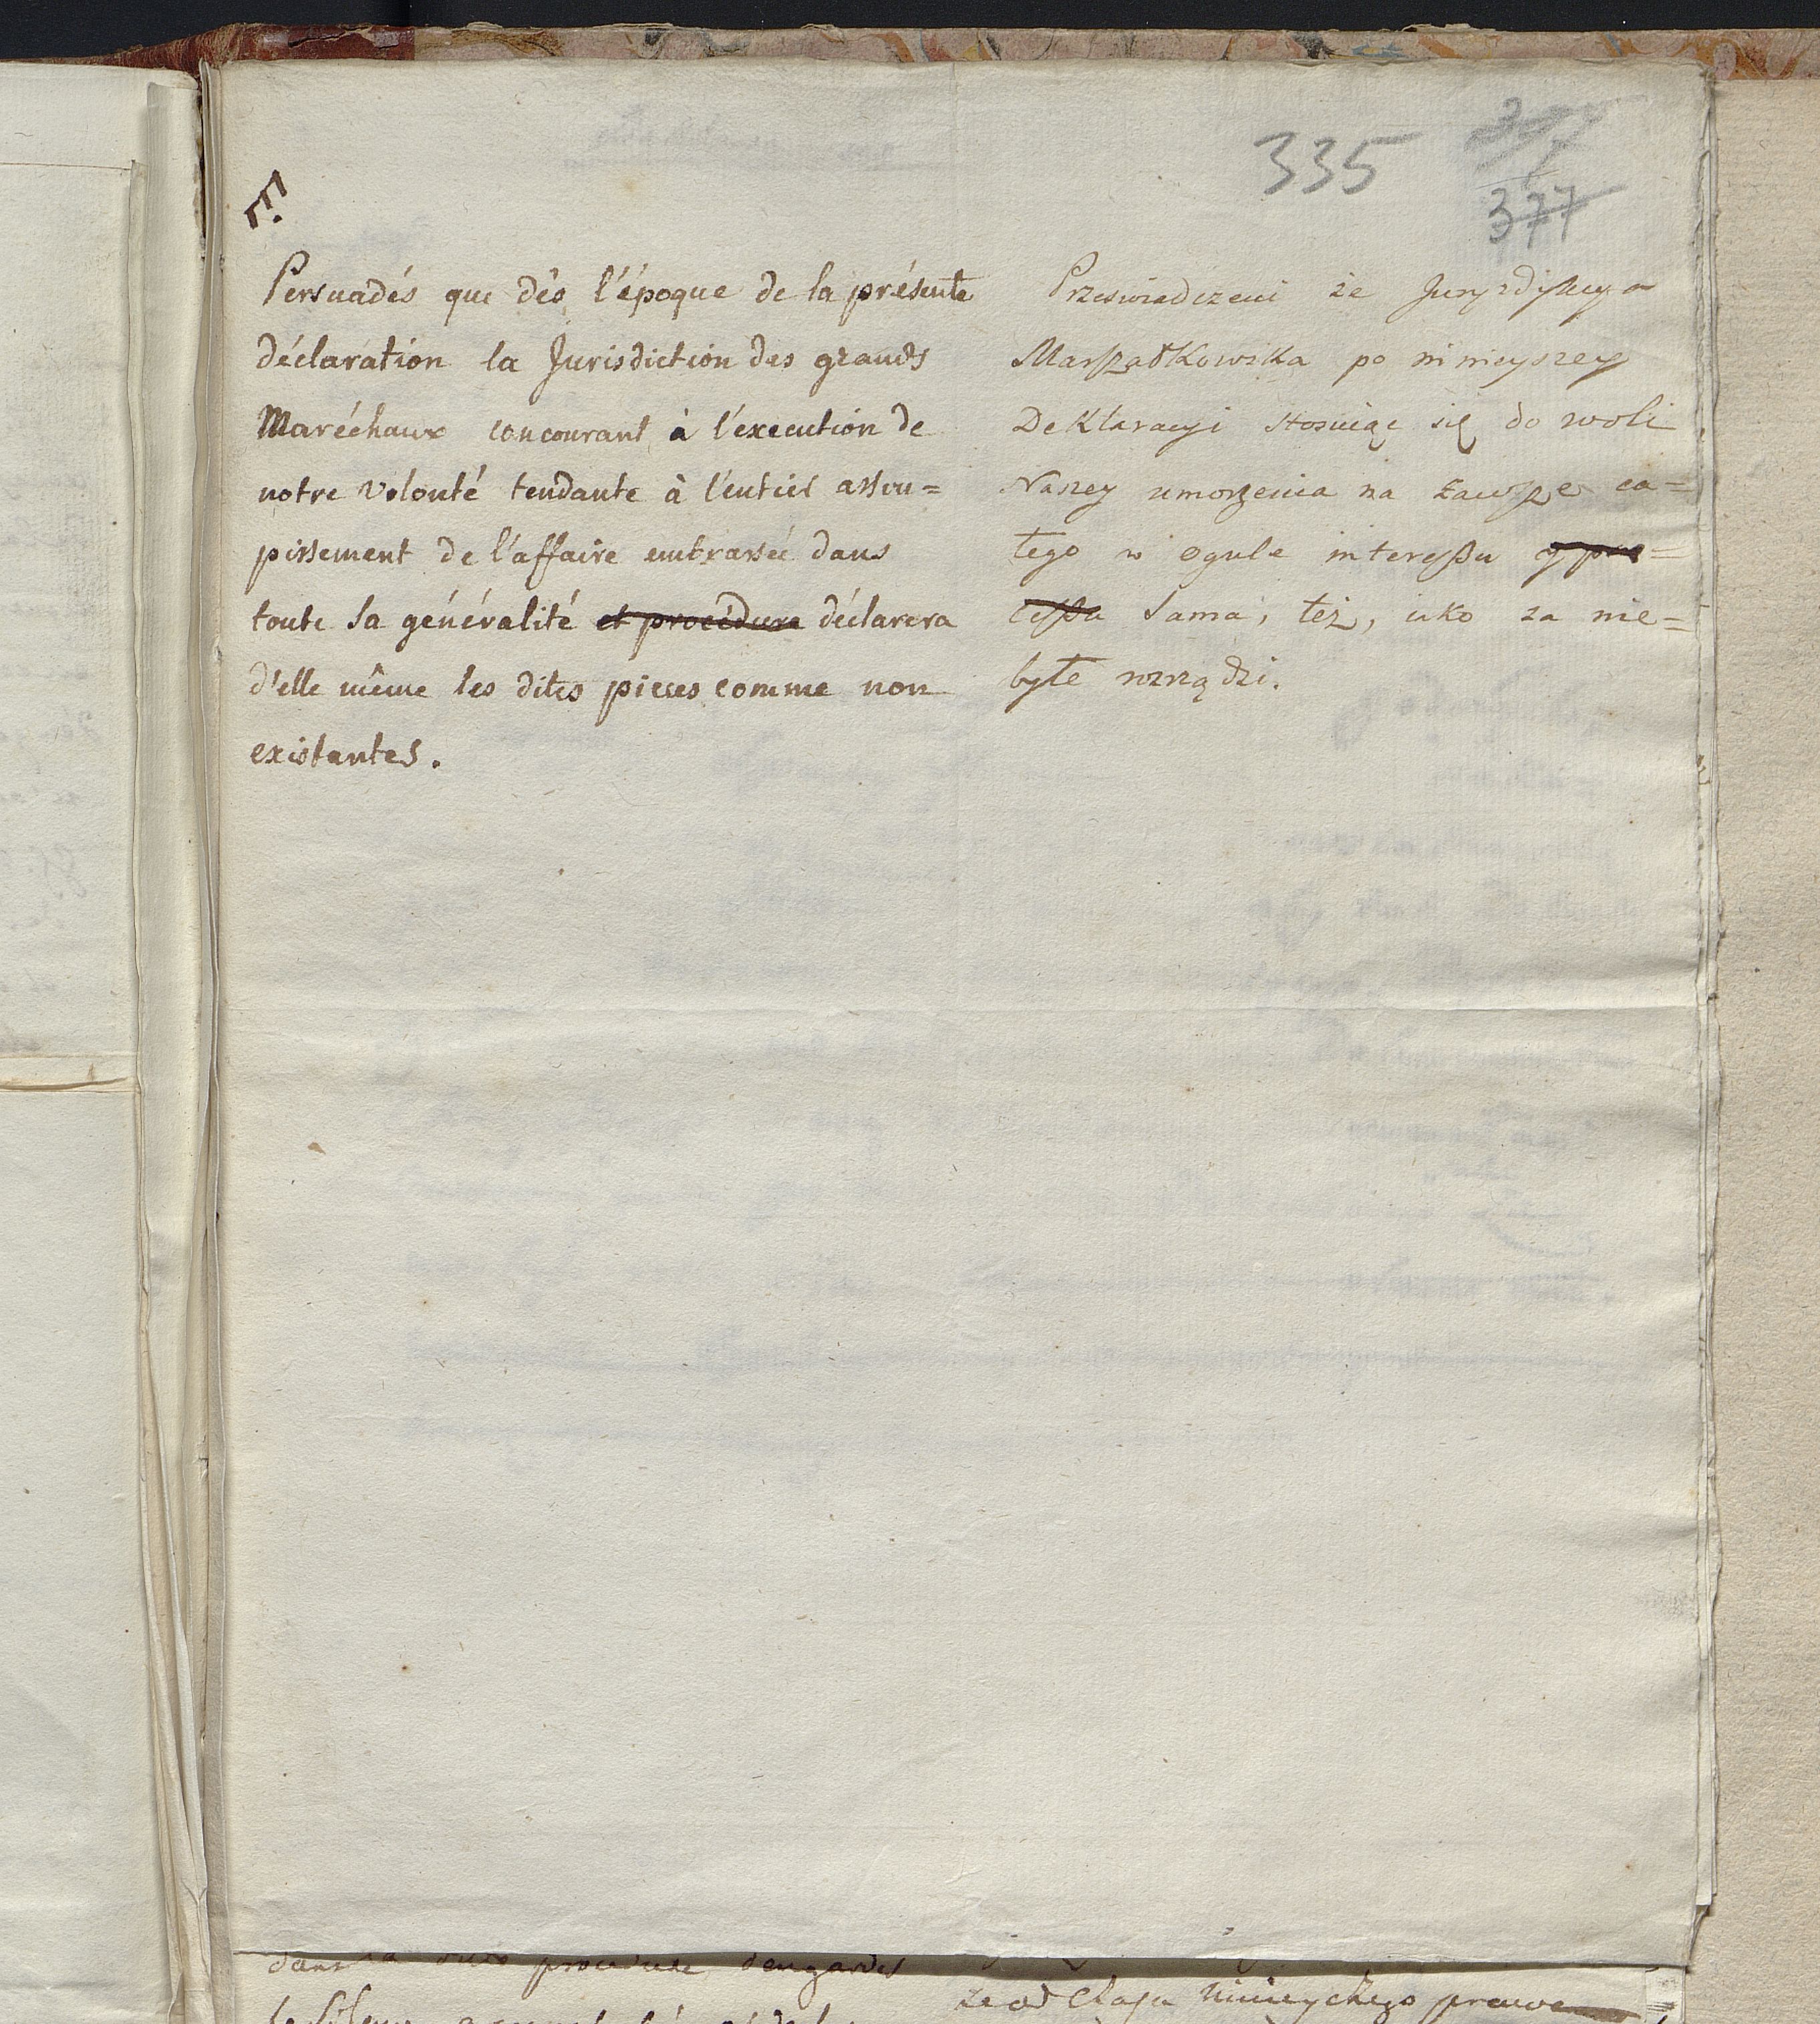 335
377
Persuadés que dès l'époque de la présente
déclaration la Jurisdiction des grands
Maréchaux concourant à l'execution de
notre volonté tendante à l'entier assou=
pissement de l'affaire embrassée dans
toute sa généralité et procédure déclarera
d'elle même les dites pieces comme non
existantes.
Przeswiadczeni że Juryzdykcya
Marszałkowska po ninieyszey
Deklaracyi stosuiąc się do woli
Naszey umorzenia na zawsze ca=
łego w ogule interessu y pro=
cessu sama, też, iako za nie=
byłe rozrządzi.
dans procedure
że od Czasu ninieyszego prawo